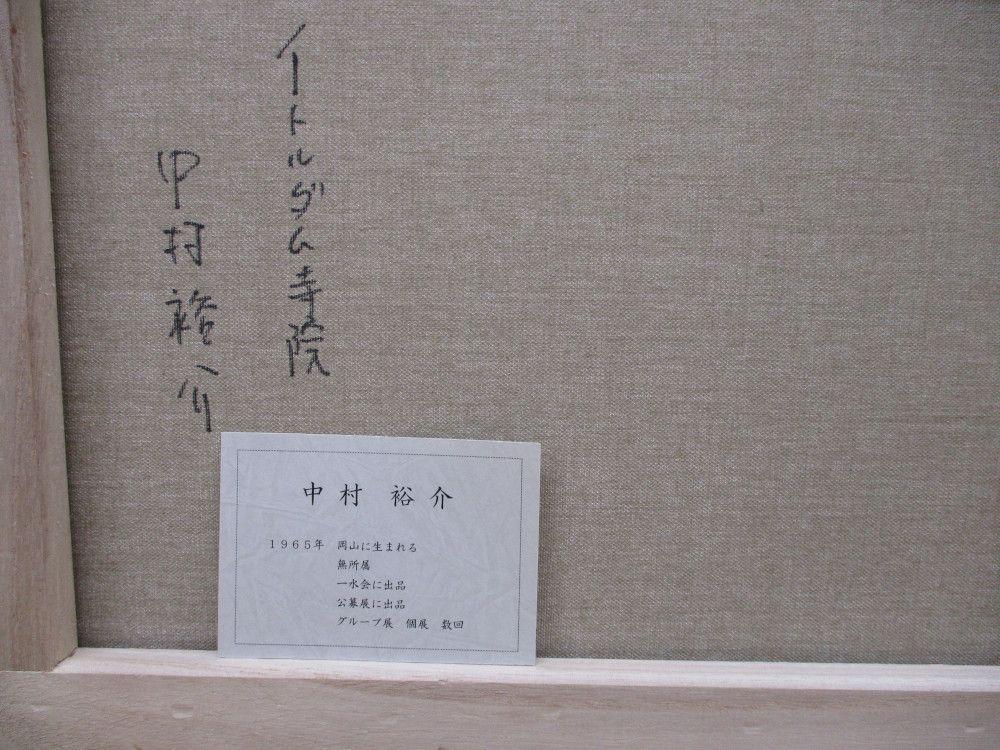 イートルダム寺院
中村裕介
中村 裕介
1965年 岡山に生まれる
無所属
一水会に出品
公募展に出品
グループ展 個展 数回